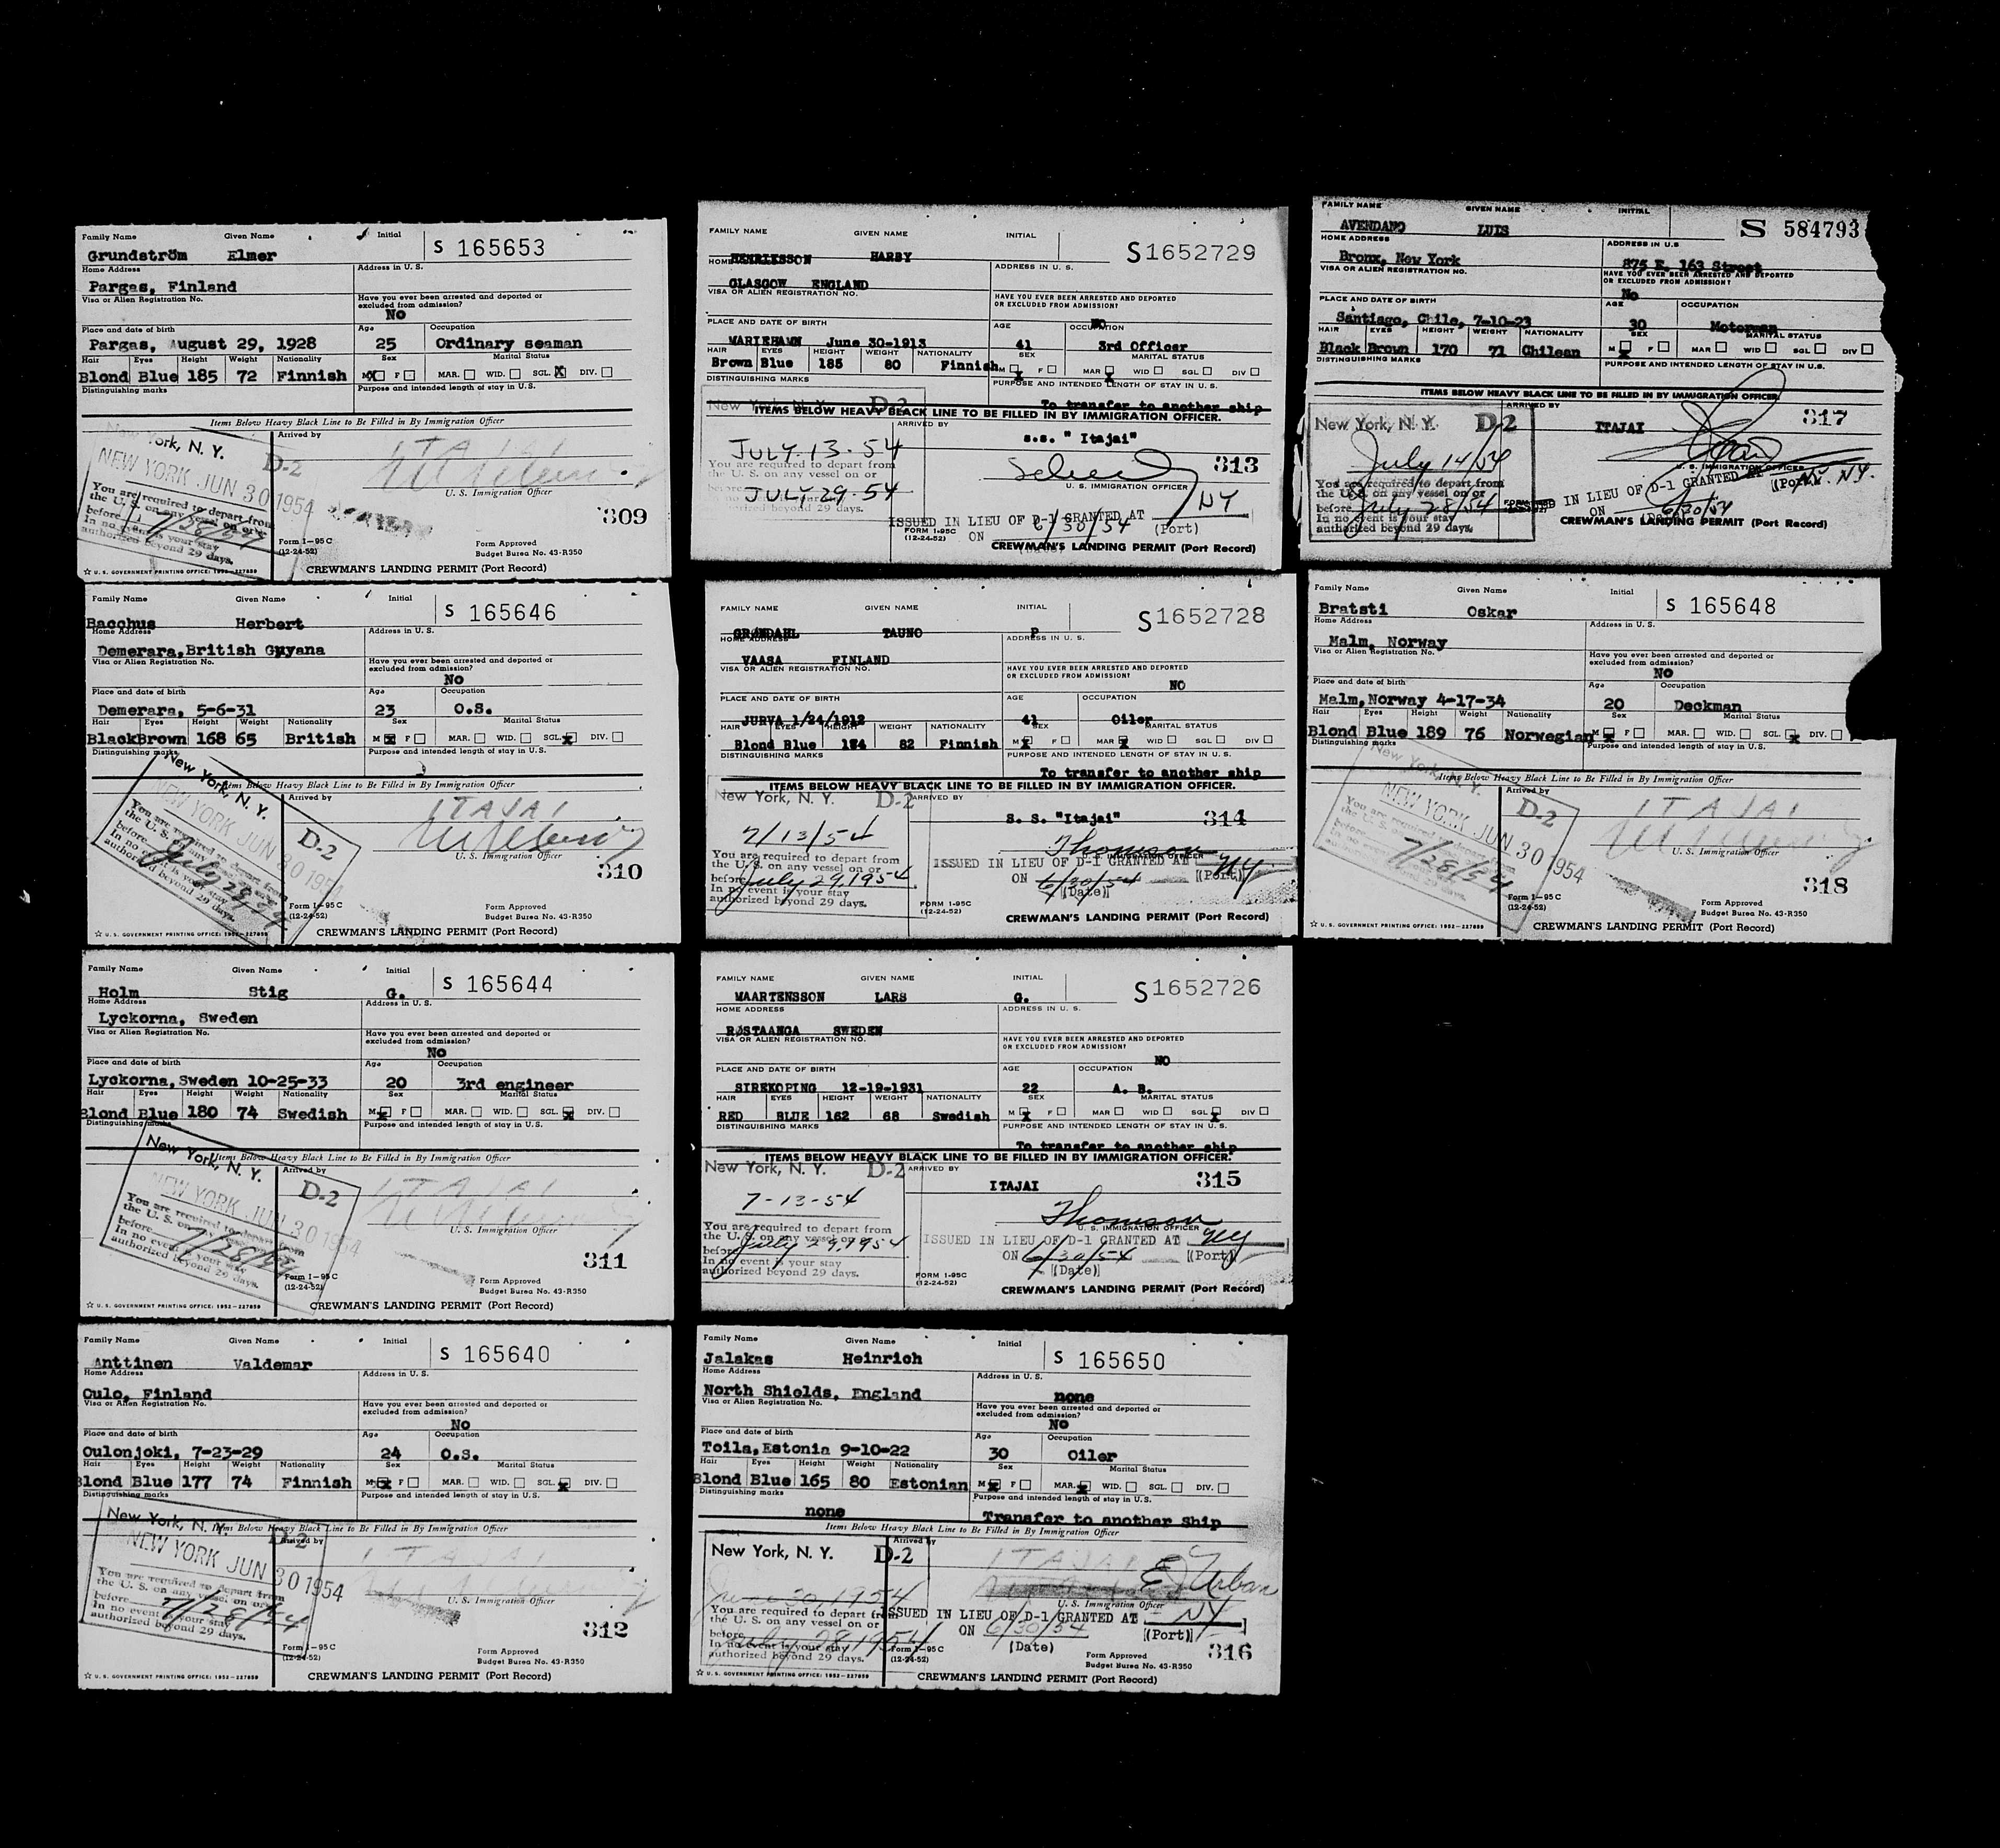 Family Name Given Name Initial S 165653
Grundström Elmer
Home Address Address in U. S.
Pargas, Finland
Visa or Alien Registration No. Have you ever been arrested and deported or excluded from admission?
No
Place and date of birth Age Occupation
Pargas, August 29, 1928 25 Ordinary seaman
Hair Eyes Height Weight Nationality Sex Marital Status
Blond Blue 185 72 Finnish M X F MAR. WID. SGL. X DIV.
Distinguishing marks Purpose and intended length of stay in U. S.
Items Below Heavy Black Line to Be Filled in By Immigration Officer
New York, N. Y. D-2 Arrived by
ITAJAI
NEW YORK JUN 30 1954
U. S. Immigration Officer
You are required to depart from
the U. S. on any vessel on or
before 7/28/54
In no event is your stay
authorized beyond 29 days.
309
Form I-95 C
(12-24-52)
Form Approved
Budget Burea No. 43-R350
☆ U. S. GOVERNMENT PRINTING OFFICE: 1952-227859 CREWMAN'S LANDING PERMIT (Port Record)
Family Name Given Name Initial S 165646
Bacchus Herbert
Home Address Address in U. S.
Demerara, British Guyana
Visa or Alien Registration No. Have you ever been arrested and deported or excluded from admission?
No
Place and date of birth Age Occupation
Demerara, 5-6-31 23 O.S.
Hair Eyes Height Weight Nationality Sex Marital Status
Black Brown 168 65 British M X F MAR. WID. SGL. X DIV.
Distinguishing marks Purpose and intended length of stay in U. S.
Items Below Heavy Black Line to Be Filled in By Immigration Officer
New York, N. Y. D-2 Arrived by
ITAJAI
NEW YORK JUN 30 1954
U. S. Immigration Officer
You are required to depart from
the U. S. on any vessel on or
before July 28/54
In no event is your stay
authorized beyond 29 days.
310
Form I-95 C
(12-24-52)
Form Approved
Budget Burea No. 43-R350
☆ U. S. GOVERNMENT PRINTING OFFICE: 1952-227859 CREWMAN'S LANDING PERMIT (Port Record)
Family Name Given Name Initial S 165644
Holm Stig G.
Home Address Address in U. S.
Lyckorna, Sweden
Visa or Alien Registration No. Have you ever been arrested and deported or excluded from admission?
No
Place and date of birth Age Occupation
Lyckorna, Sweden 10-25-33 20 3rd engineer
Hair Eyes Height Weight Nationality Sex Marital Status
Blond Blue 180 74 Swedish M X F MAR. WID. SGL. X DIV.
Distinguishing marks Purpose and intended length of stay in U. S.
Items Below Heavy Black Line to Be Filled in By Immigration Officer
New York, N. Y. D-2 Arrived by
ITAJAI
NEW YORK JUN 30 1954
U. S. Immigration Officer
You are required to depart from
the U. S. on any vessel on or
before 7/28/54
In no event is your stay
authorized beyond 29 days.
311
Form I-95 C
(12-24-52)
Form Approved
Budget Burea No. 43-R350
☆ U. S. GOVERNMENT PRINTING OFFICE: 1952-227859 CREWMAN'S LANDING PERMIT (Port Record)
Family Name Given Name Initial S 165640
Anttinen Valdemar
Home Address Address in U. S.
Oulo, Finland
Visa or Alien Registration No. Have you ever been arrested and deported or excluded from admission?
No
Place and date of birth Age Occupation
Oulonjoki, 7-23-29 24 O.S.
Hair Eyes Height Weight Nationality Sex Marital Status
Blond Blue 177 74 Finnish M X F MAR. WID. SGL. X DIV.
Distinguishing marks Purpose and intended length of stay in U. S.
Items Below Heavy Black Line to Be Filled in By Immigration Officer
New York, N. Y. D-2 Arrived by
ITAJAI
NEW YORK JUN 30 1954
U. S. Immigration Officer
You are required to depart from
the U. S. on any vessel on or
before 7/28/54
In no event is your stay
authorized beyond 29 days.
312
Form I-95 C
(12-24-52)
Form Approved
Budget Burea No. 43-R350
☆ U. S. GOVERNMENT PRINTING OFFICE: 1952-227859 CREWMAN'S LANDING PERMIT (Port Record)
FAMILY NAME GIVEN NAME INITIAL S1652729
HENRIKSSON HARRY
HOME ADDRESS IN U. S.
GLASGOW ENGLAND
VISA OR ALIEN REGISTRATION NO. HAVE YOU EVER BEEN ARRESTED AND DEPORTED OR EXCLUDED FROM ADMISSION?
NO
PLACE AND DATE OF BIRTH AGE OCCUPATION
MARIEHAMN June 30-1913 41 3rd Officer
HAIR EYES HEIGHT WEIGHT NATIONALITY SEX MARITAL STATUS
Brown Blue 185 80 Finnish M X F MAR X WID SGL DIV
DISTINGUISHING MARKS PURPOSE AND INTENDED LENGTH OF STAY IN U. S.
To transfer to another ship
ITEMS BELOW HEAVY BLACK LINE TO BE FILLED IN BY IMMIGRATION OFFICER.
New York, N. Y. D-2 ARRIVED BY
s.s. "Itajai"
JULY-13-54
313
U. S. IMMIGRATION OFFICER
You are required to depart from
the U. S. on any vessel on or
before JULY-29-54
In no event is your stay
authorized beyond 29 days.
ISSUED IN LIEU OF D-1 GRANTED AT NY
ON 6/30/54 (Port)
(Date)
FORM I-95C
(12-24-52)
CREWMAN'S LANDING PERMIT (Port Record)
FAMILY NAME GIVEN NAME INITIAL S1652728
GRØNDAHL TAUNO P
HOME ADDRESS ADDRESS IN U. S.
VAASA FINLAND
VISA OR ALIEN REGISTRATION NO. HAVE YOU EVER BEEN ARRESTED AND DEPORTED OR EXCLUDED FROM ADMISSION?
NO
PLACE AND DATE OF BIRTH AGE OCCUPATION
JURVA 1/24/1912 41 Oiler
HAIR EYES HEIGHT WEIGHT NATIONALITY SEX MARITAL STATUS
Blond Blue 184 82 Finnish M X F MAR X WID SGL DIV
DISTINGUISHING MARKS PURPOSE AND INTENDED LENGTH OF STAY IN U. S.
To transfer to another ship
ITEMS BELOW HEAVY BLACK LINE TO BE FILLED IN BY IMMIGRATION OFFICER.
New York, N. Y. D-2 ARRIVED BY
S. S. "Itajai" 314
7/13/54
Thomson
U. S. IMMIGRATION OFFICER
You are required to depart from
the U. S. on any vessel on or
before July 29, 1954
In no event is your stay
authorized beyond 29 days.
ISSUED IN LIEU OF D-1 GRANTED AT NY
ON 6/30/54 (Port)
(Date)
FORM I-95C
(12-24-52)
CREWMAN'S LANDING PERMIT (Port Record)
FAMILY NAME GIVEN NAME INITIAL S1652726
MAARTENSSON LARS G.
HOME ADDRESS ADDRESS IN U. S.
RØSTAANGA SWEDEN
VISA OR ALIEN REGISTRATION NO. HAVE YOU EVER BEEN ARRESTED AND DEPORTED OR EXCLUDED FROM ADMISSION?
NO
PLACE AND DATE OF BIRTH AGE OCCUPATION
SIREKOPING 12-19-1931 22 A. B.
HAIR EYES HEIGHT WEIGHT NATIONALITY SEX MARITAL STATUS
RED BLUE 162 68 Swedish M X F MAR WID SGL X DIV
DISTINGUISHING MARKS PURPOSE AND INTENDED LENGTH OF STAY IN U. S.
To transfer to another ship
ITEMS BELOW HEAVY BLACK LINE TO BE FILLED IN BY IMMIGRATION OFFICER.
New York, N. Y. D-2 ARRIVED BY
ITAJAI 315
7-13-54
Thomson
U. S. IMMIGRATION OFFICER
You are required to depart from
the U. S. on any vessel on or
before July 29, 1954
In no event is your stay
authorized beyond 29 days.
ISSUED IN LIEU OF D-1 GRANTED AT NY
ON 6/30/54 (Port)
(Date)
FORM I-95C
(12-24-52)
CREWMAN'S LANDING PERMIT (Port Record)
Family Name Given Name Initial S 165650
Jalakas Heinrich
Home Address Address in U. S.
North Shields, England none
Visa or Alien Registration No. Have you ever been arrested and deported or excluded from admission?
No
Place and date of birth Age Occupation
Toila, Estonia 9-10-22 30 Oiler
Hair Eyes Height Weight Nationality Sex Marital Status
Blond Blue 165 80 Estonian M X F MAR. X WID. SGL. DIV.
Distinguishing marks Purpose and intended length of stay in U. S.
none Transfer to another Ship
Items Below Heavy Black Line to Be Filled in By Immigration Officer
New York, N. Y. D-2 Arrived by
ITAJAI
E Urban
June 30, 1954
U. S. Immigration Officer
You are required to depart from
the U. S. on any vessel on or
before July 28, 1954
In no event is your stay
authorized beyond 29 days.
ISSUED IN LIEU OF D-1 GRANTED AT NY
ON 6/30/54 (Port)
(Date)
316
Form I-95 C
(12-24-52)
Form Approved
Budget Burea No. 43-R350
☆ U. S. GOVERNMENT PRINTING OFFICE: 1952-227859 CREWMAN'S LANDING PERMIT (Port Record)
FAMILY NAME GIVEN NAME INITIAL S 584793
AVENDANO LUIS
HOME ADDRESS ADDRESS IN U.S
Bronx, New York 875 E. 163 Street
VISA OR ALIEN REGISTRATION NO. HAVE YOU EVER BEEN ARRESTED AND DEPORTED OR EXCLUDED FROM ADMISSION?
No
PLACE AND DATE OF BIRTH AGE OCCUPATION
Santiago, Chile, 7-10-23 30 Motorman
HAIR EYES HEIGHT WEIGHT NATIONALITY SEX MARITAL STATUS
Black Brown 170 71 Chilean M X F MAR WID SGL DIV
DISTINGUISHING MARKS PURPOSE AND INTENDED LENGTH OF STAY IN U.S.
ITEMS BELOW HEAVY BLACK LINE TO BE FILLED IN BY IMMIGRATION OFFICER.
New York, N. Y. D-2 ARRIVED BY
ITAJAI 317
July 14/54
U. S. IMMIGRATION OFFICER
You are required to depart from
the U. S. on any vessel on or
before July 28/54
In no event is your stay
authorized beyond 29 days.
ISSUED IN LIEU OF D-1 GRANTED AT N.Y. NY.
ON 6/30/54 (Port)
CREWMAN'S LANDING PERMIT (Port Record)
Family Name Given Name Initial S 165648
Bratsti Oskar
Home Address Address in U. S.
Malm, Norway
Visa or Alien Registration No. Have you ever been arrested and deported or excluded from admission?
No
Place and date of birth Age Occupation
Malm, Norway 4-17-34 20 Deckman
Hair Eyes Height Weight Nationality Sex Marital Status
Blond Blue 189 76 Norwegian M X F MAR. WID. SGL. X DIV.
Distinguishing marks Purpose and intended length of stay in U. S.
Items Below Heavy Black Line to Be Filled in By Immigration Officer
New York, N. Y. D-2 Arrived by
ITAJAI
NEW YORK JUN 30 1954
U. S. Immigration Officer
You are required to depart from
the U. S. on any vessel on or
before 7/28/54
In no event is your stay
authorized beyond 29 days.
318
Form I-95 C
(12-24-52)
Form Approved
Budget Burea No. 43-R350
☆ U. S. GOVERNMENT PRINTING OFFICE: 1952-227859 CREWMAN'S LANDING PERMIT (Port Record)